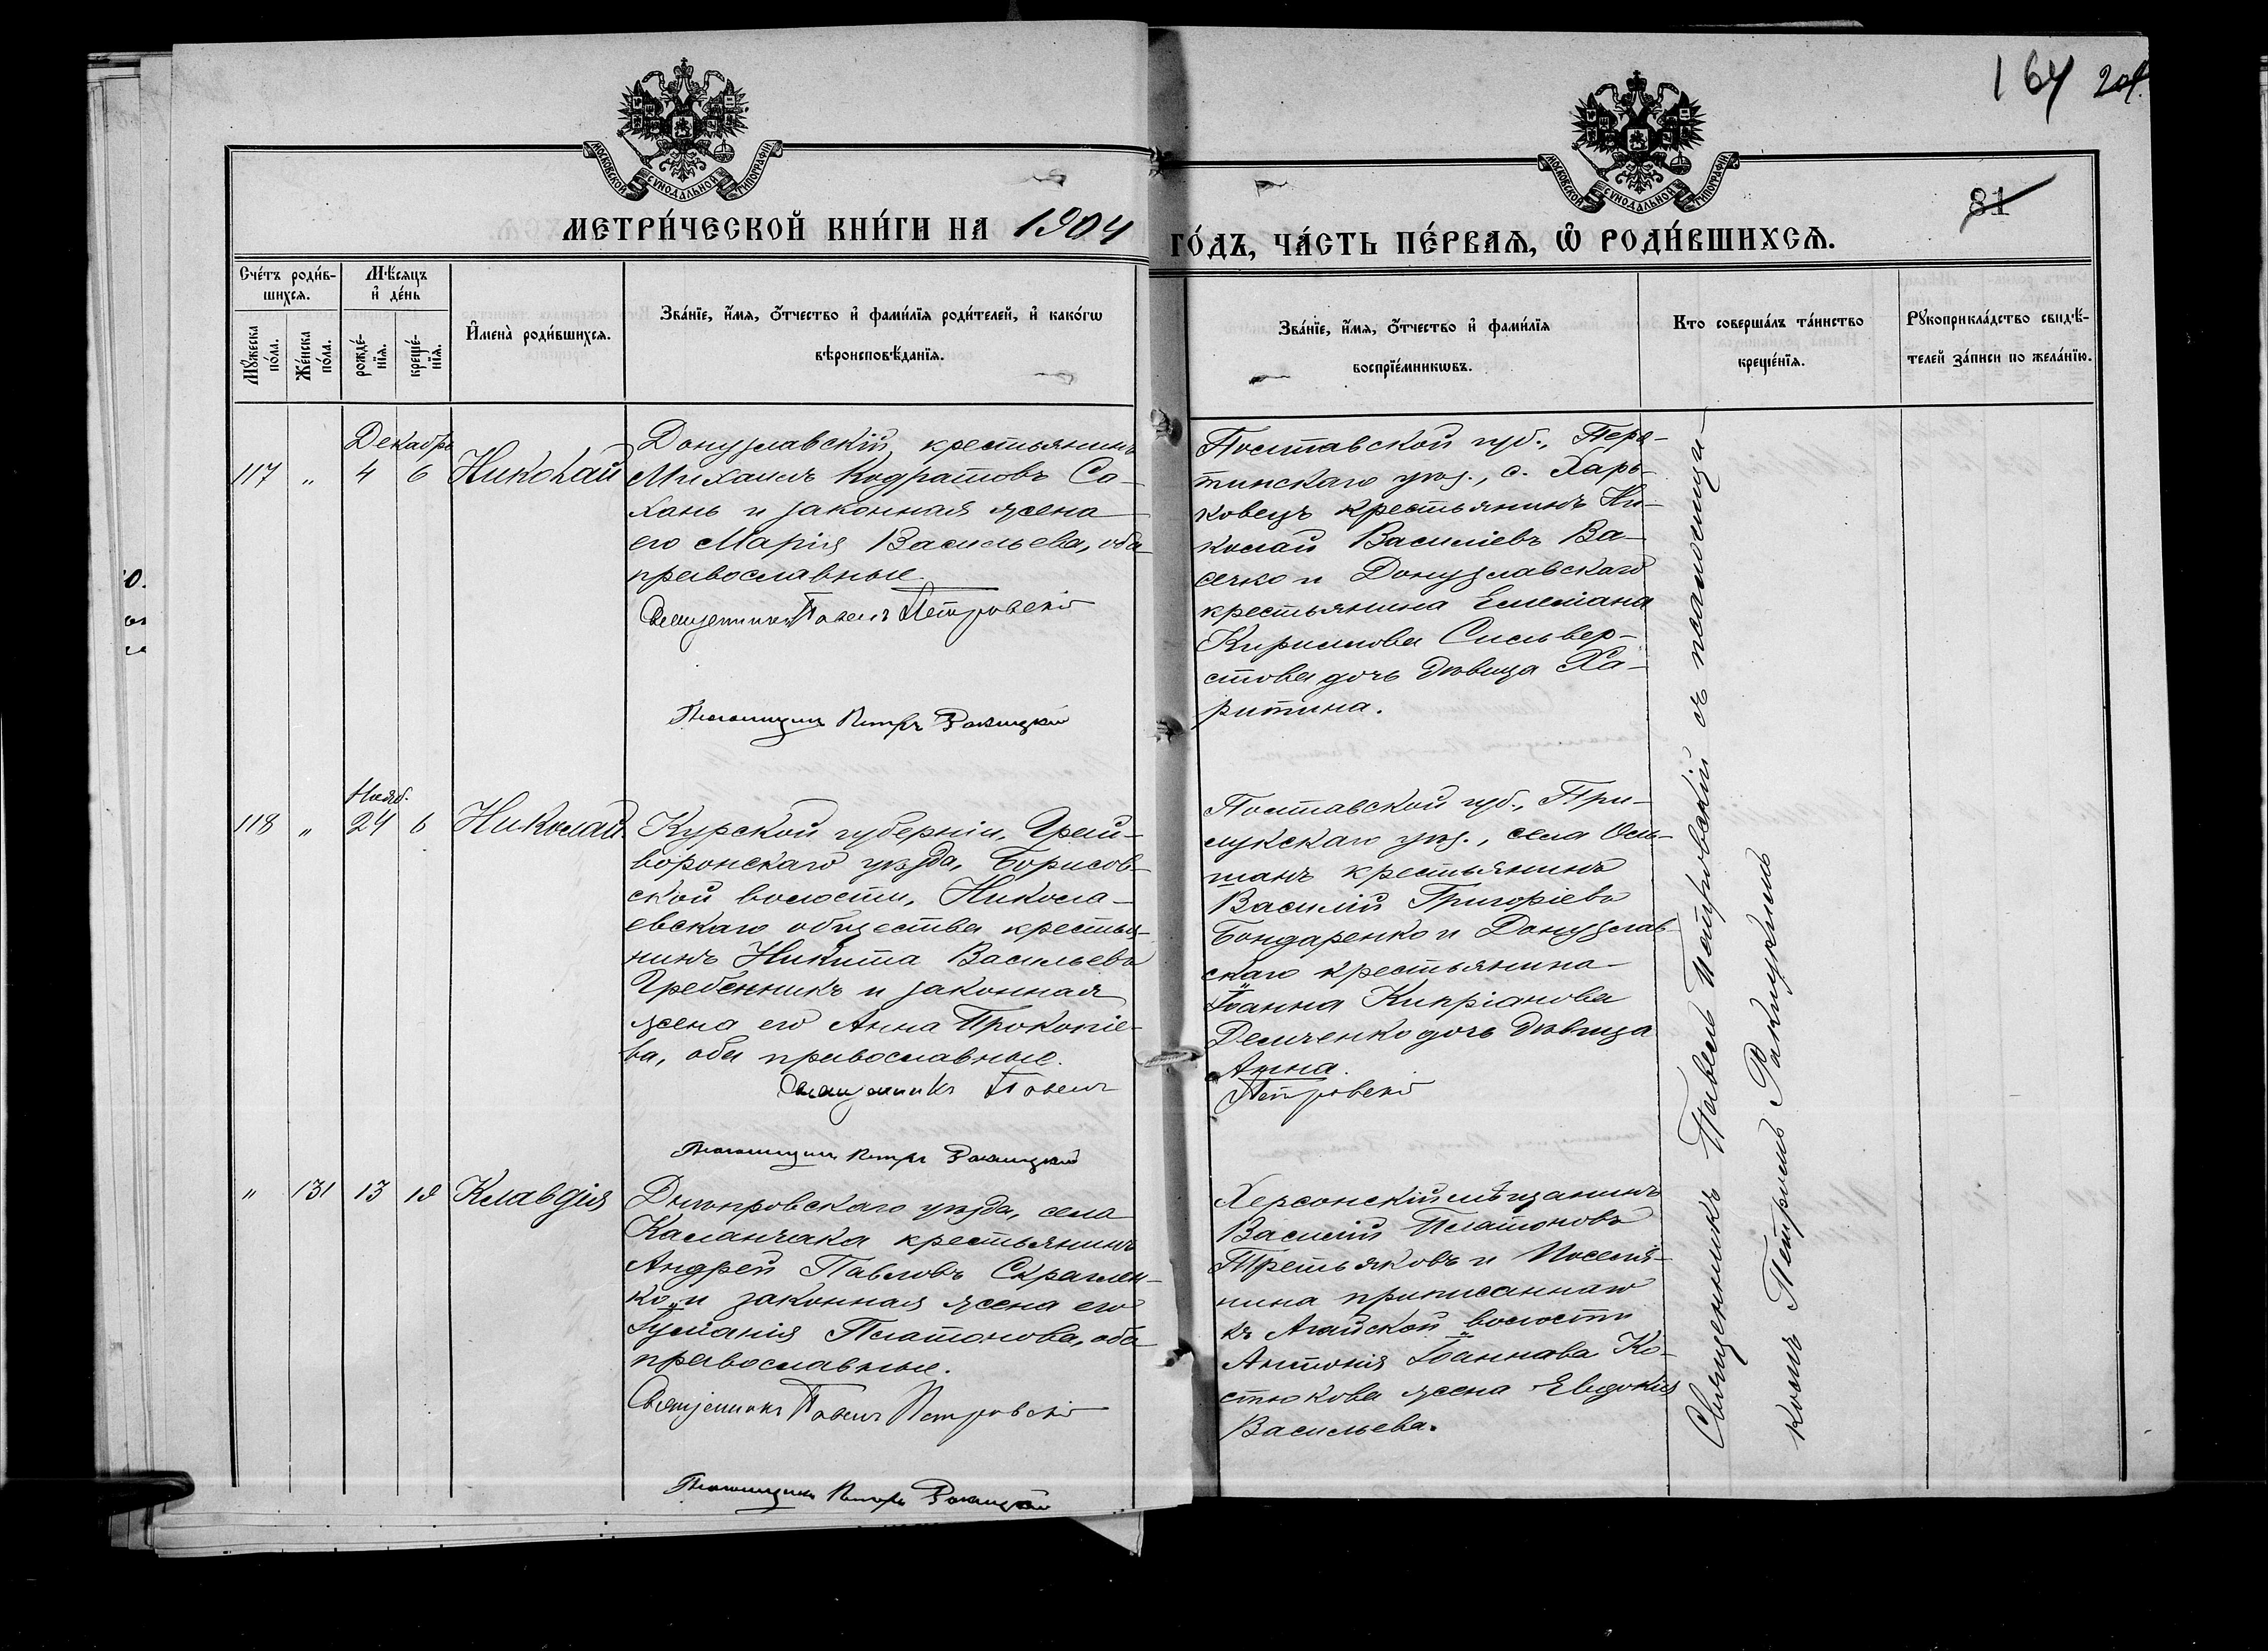 164 204
МОСКОВСКОЙ СѴНОДАЛЬНОЙ ТИПОГРАФІИ
МОСКОВСКОЙ СѴНОДАЛЬНОЙ ТИПОГРАФІИ
81
МЕТРИ́ЧЕСКОЙ КНИ́ГИ НА 1904 ГО́ДЪ, ЧА́СТЬ ПЕ́РВАѦ, Ѽ РОДИ́ВШИХСѦ.
Сче́тъ роди́в-
шихсѧ.
Мꙋ́жеска по́ла.
Же́нска по́ла.
Мѣ́сѧцъ и҆ де́нь
рожде́-нїѧ.
креще́-нїѧ.
И҆мена̀ роди́вшихсѧ.
Зва́нїе, и҆́мѧ, ѻ҆́тчество и҆ фами́лїѧ роди́телей, и҆ како́гѡ
вѣроисповѣ́данїѧ.
Зва́нїе, и҆́мѧ, ѻ҆́тчество и҆ фами́лїѧ
воспрїе́мникѡвъ.
Кто соверша́лъ та́инство
креще́нїѧ.
Рꙋкоприкла́дство свидѣ́-
телей за́писи по жела́нїю.
Декабрь
117 " 4 6 Николай
Донузлавскій крестьянинъ
Михаилъ Кодратовъ Са-
хань и законная жена
его Марія Васильева, оба
православные.
Священникъ Павелъ Петровскій
Псаломщикъ Петръ Ракицкій
Полтавской губ., Пиря-
тинскаго уѣз., с. Харь-
ковецъ крестьянинъ Ни-
колай Василіевъ Ва-
сечко и Донузлавскаго
крестьянина Емеліана
Кириллова Сильвер-
стова дочь дѣвица Ха-
ритина.
Нояб.
118 " 24 6 Николай
Курской губерніи, Грай-
воронскаго уѣзда, Борисов-
ской волости, Никола-
евскаго общества крестья-
нинъ Никита Васильевъ
Гребенникъ и законная
жена его Анна Прокопіе-
ва, оба православные.
Священникъ Павелъ Петровскій
Псаломщикъ Петръ Ракицкій
Полтавской губ., При-
лукскаго уѣз., села Оль-
шанъ крестьянинъ
Василій Григоріевъ
Бондаренко и Донузлав-
скаго крестьянина
Іоанна Кипріанова
Демченко дочь дѣвица
Анна.
" 131 13 19 Клавдія
Днѣпровскаго уѣзда, села
Каланчака крестьянинъ
Андрей Павловъ
ко и законная жена его
Іуліанія Платонова, оба
православные.
Священникъ Павелъ Петровскій
Псаломщикъ Петръ Ракицкій
Херсонскій мѣщанинъ
Василій Платоновъ
Третьяковъ и Поселя-
нина приписаннаго
къ Агайской волости
Антонія Іоаннова Ко-
стюкова жена Евдокія
Васильева.
Священникъ Павелъ Петровскій съ псаломщи-
комъ Петромъ Ракицкимъ